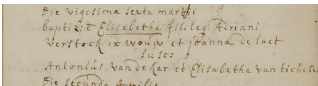 die vigesima sexta martii
baptis: ē Elisabetha fil: leg: Adriani
Verstock ex wouw et joanna de laet
susc:
Antonius van de kar et Elisabetha van tichele
die secunda Aprilis